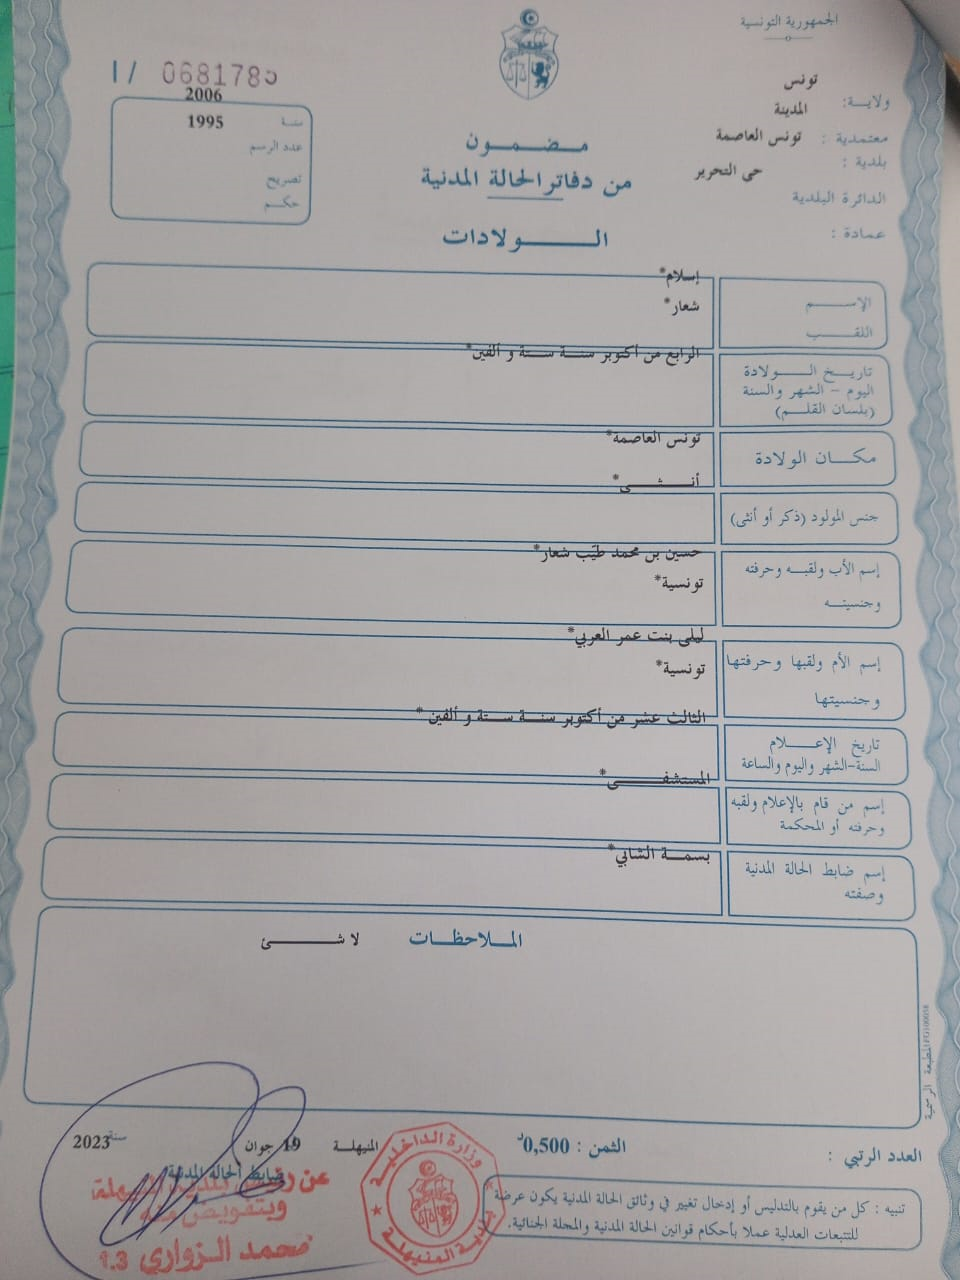 الجمهورية التونسية
ولاية: تونس
معتمدية : المدينة
بلدية : تونس العاصمة
الدائرة البلدية حي التحرير
عمادة :
I/ 0681785
2006
سنة
1995
عدد الرسم
تصريح
حكم
مضمون
من دفاتر الحالة المدنية
الولادات
الإسم
إسلام*
اللقب
شعار*
تاريخ الولادة
اليوم – الشهر والسنة
(بلسان القلم)
الرابع من أكتوبر سنة ستة و ألفين*
مكان الولادة
تونس العاصمة*
جنس المولود (ذكر أو أنثى)
أنثى*
إسم الأب ولقبه وحرفته
وجنسيته
حسين بن محمد طيّب شعار*
تونسية*
إسم الأم ولقبها وحرفتها
وجنسيتها
ليلى بنت عمر العربي*
تونسية*
تاريخ الإعلام
السنة-الشهر واليوم والساعة
الثالث عشر من أكتوبر سنة ستة و ألفين*
إسم من قام بالإعلام ولقبه
وحرفته أو المحكمة
المستشفى*
إسم ضابط الحالة المدنية
وصفته
بسمة الشابي*
الملاحظات
لا شئ
المطبعة الرسمية
العدد الرتبي :
الثمن : 0,500د
المنيهلة 19 جوان سنة 2023
ضابط الحالة المدنية
المنيهلة
وبتفويض منه
محمد الزواري 1.3
وزارة الداخلية
بلدية المنيهلة
تنبيه : كل من يقوم بالتدليس أو إدخال تغيير في وثائق الحالة المدنية يكون عرضة
للتتبعات العدلية عملا بأحكام قوانين الحالة المدنية والمجلة الجنائية.